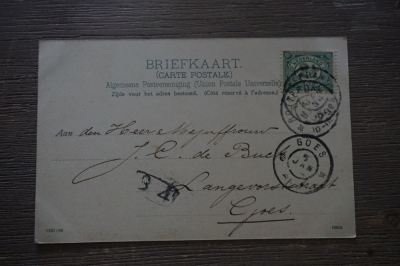 BRIEFKAART.
(CARTE POSTALE)
Algemeene Postvereeniging (Union Postale Universelle)
Zijde voor het adres bestemd. (Côté réservé à l'adresse.)
Aan den Heer & Mejuffrouw
J. C. de Buck
Langevorststraat
Goes.
GOES
JAN